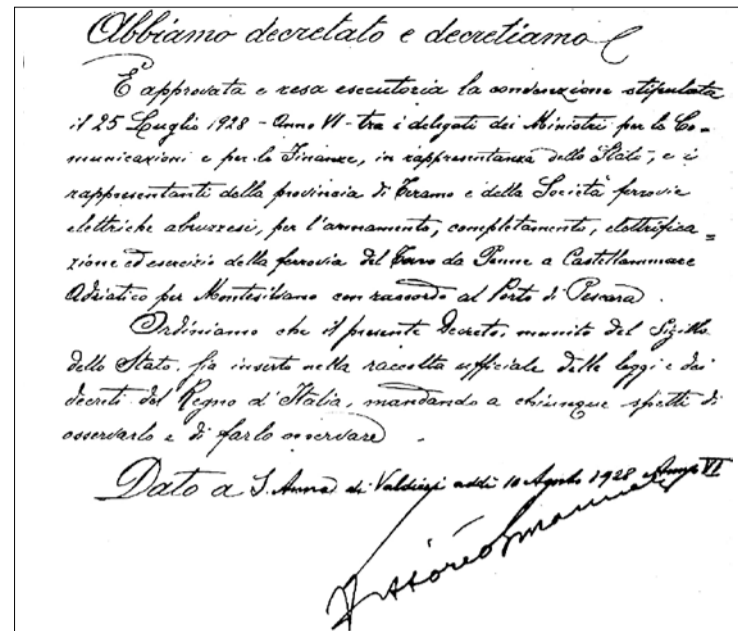 Abbiamo decretato e decretiamo
È approvata e resa esecutoria la convenzione stipulata
il 25 Luglio 1928 - Anno VI - tra i delegati dei Ministri per le Co-
municazioni e per le Finanze, in rappresentanza dello Stato, e i
rappresentanti della provincia di Teramo e della Società ferrovie
elettriche abruzzesi, per l'armamento, completamento, elettrifica=
zione ed esercizio della ferrovia del Tavo da Penne a Castellammare
Adriatico per Montesilvano con raccordo al Porto di Pescara.
Ordiniamo che il presente Decreto, munito del Sigillo
dello Stato, sia inserto nella raccolta ufficiale delle leggi e dei
decreti del Regno d'Italia, mandando a chiunque spetti di
osservarlo e di farlo osservare.
Dato a S. Anna di Valdieri addì 10 Agosto 1928 Anno VI
Vittorio Emanuele